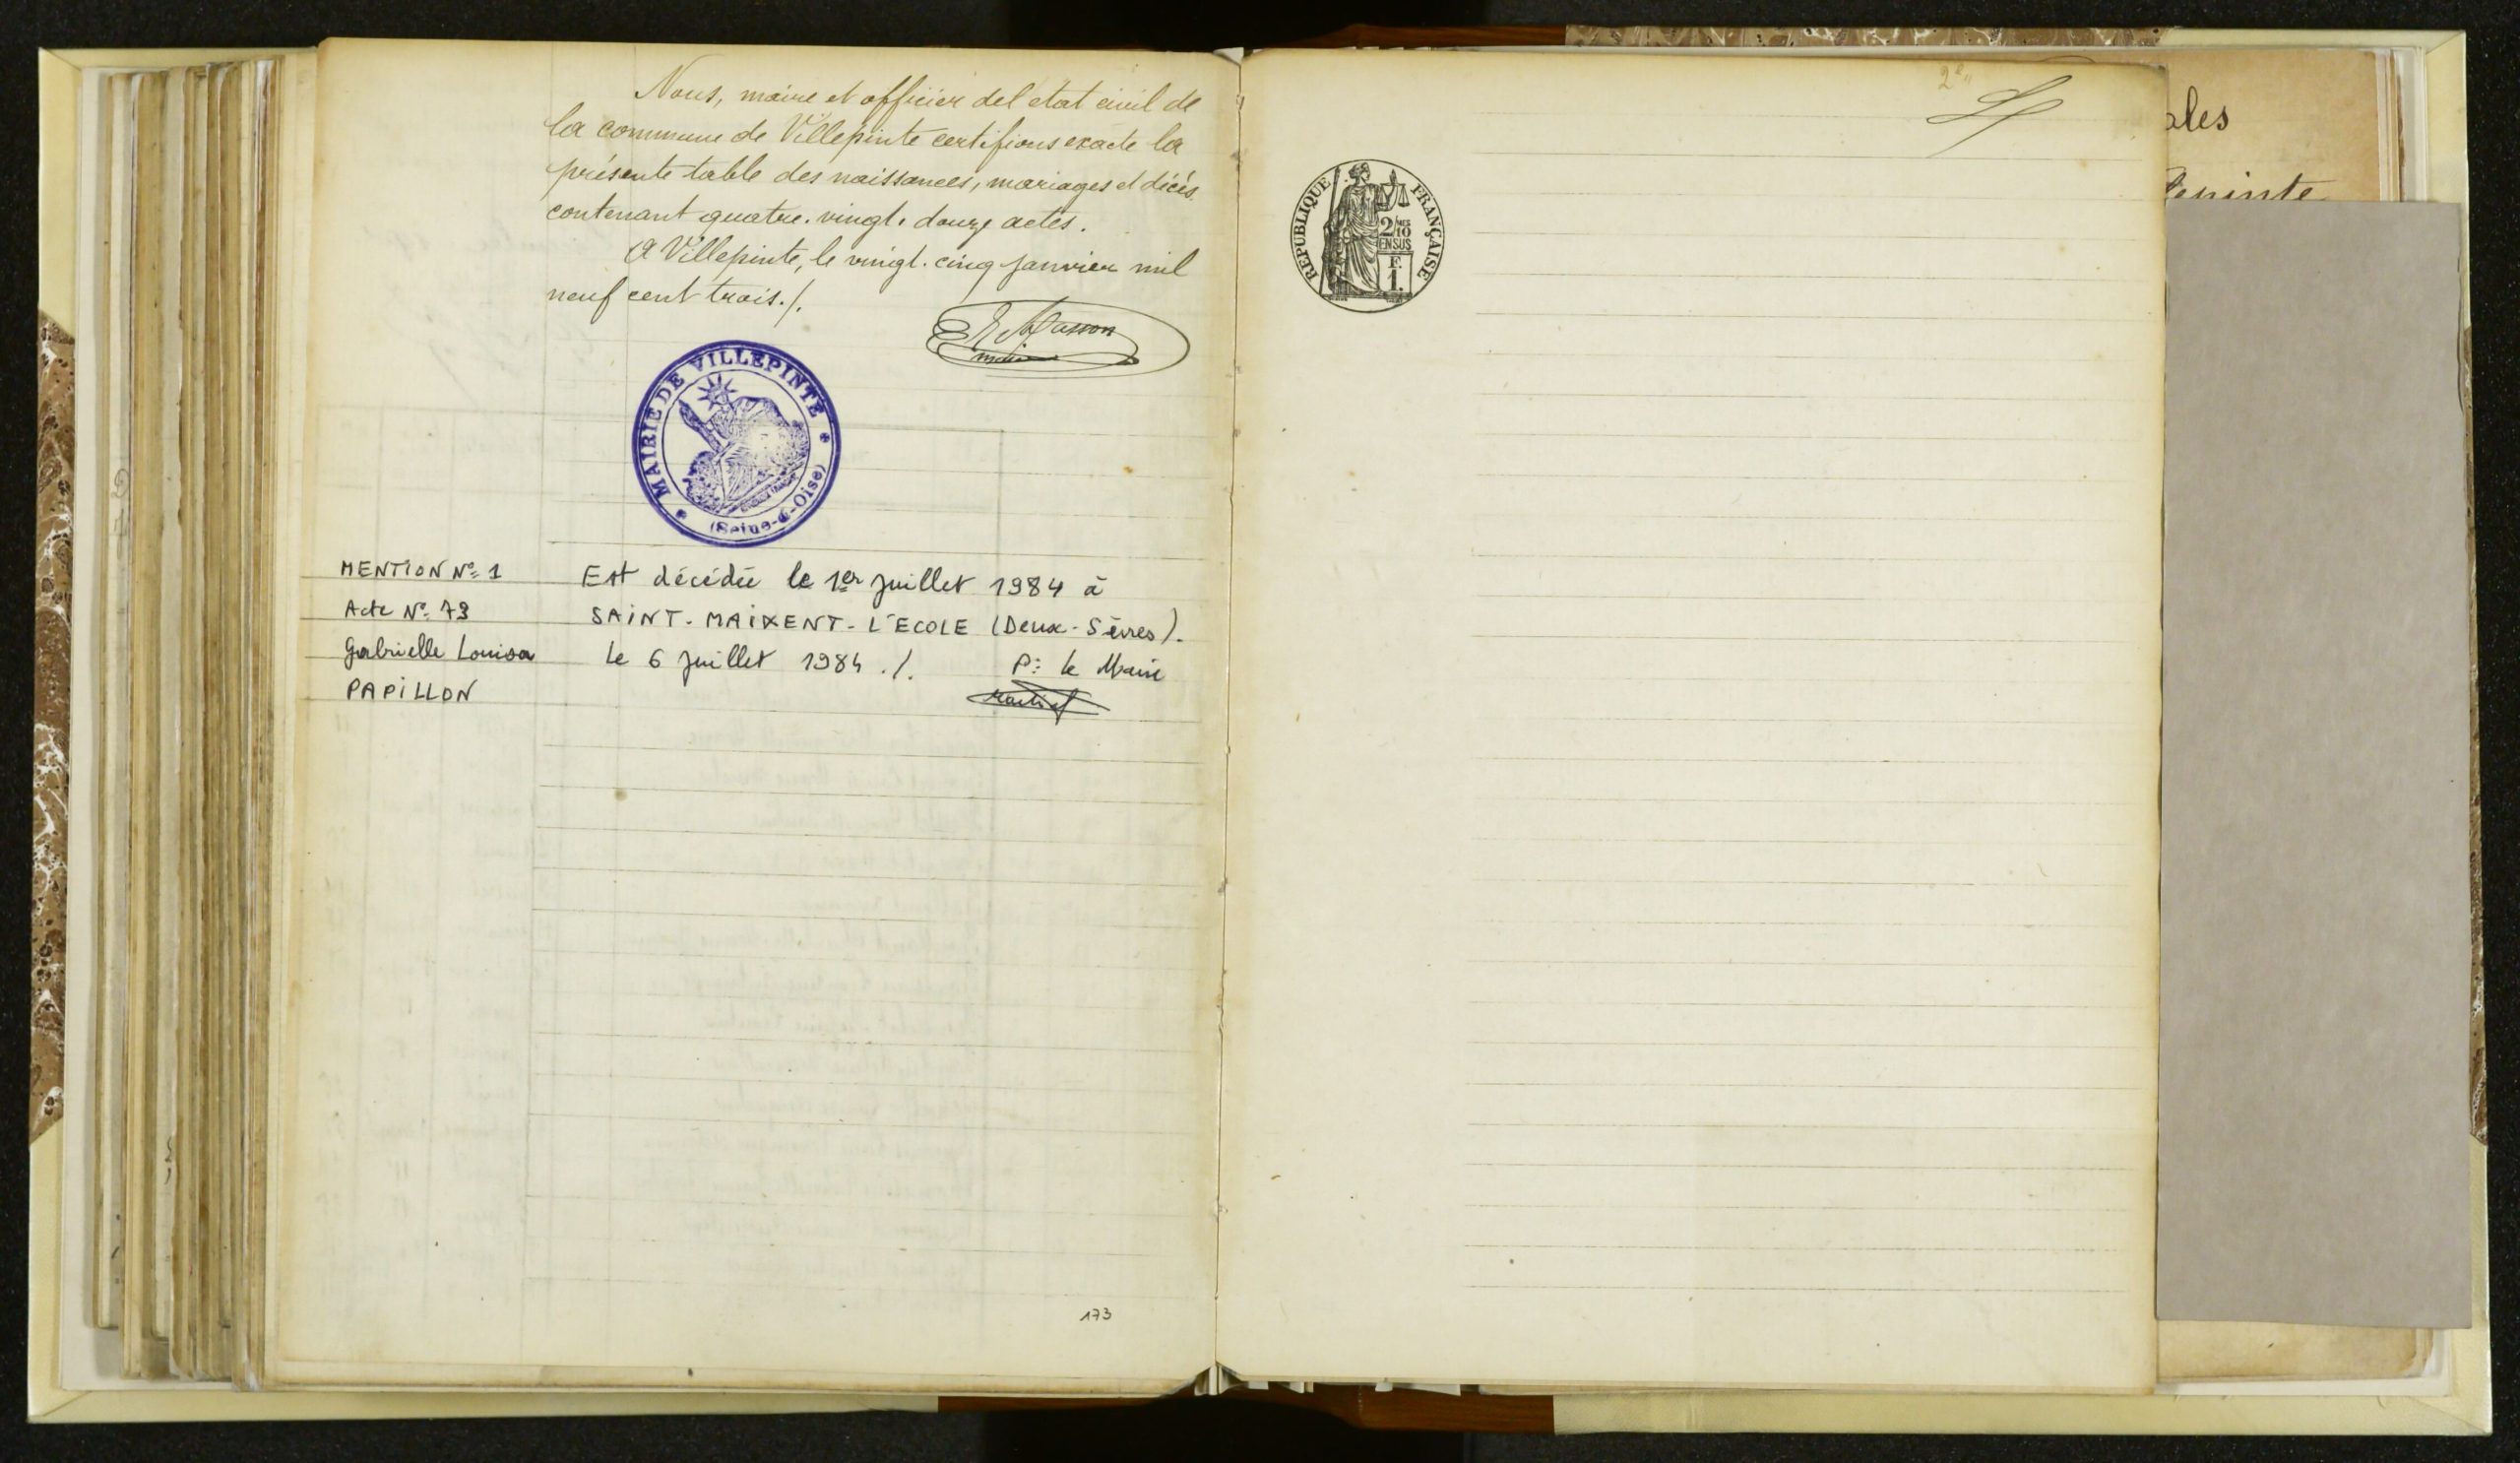 Nous, maire et officier de l'etat civil de
la commune de Villepinte certifions exacte la
présente table des naissances, mariages et décès.
contenant quatre. vingt. douze actes.
A Villepinte, le vingt. cinq janvier mil
neuf cent trois./.
Masson
maire
MAIRIE DE VILLEPINTE
(Seine-&-Oise)
MENTION No 1
Acte No 73
Gabrielle Louisa
PAPILLON
Est décédée le 1er juillet 1984 à
SAINT-MAIXENT-L'ECOLE (Deux-Sèvres).
le 6 juillet 1984 ./. P: le Maire
173
RÉPUBLIQUE FRANÇAISE
2/10
EN SUS
F.
1.
ales
lepinte